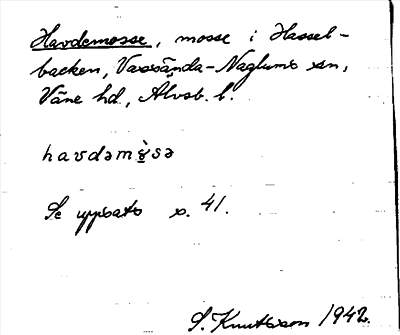 Havdemosse, mosse i Hassel-
backen, Vassända-Naglums sn,
Väne hd, Älvsb. l.
havdəmòsə
Se uppsats s. 41.
S. Knutsson 1942.